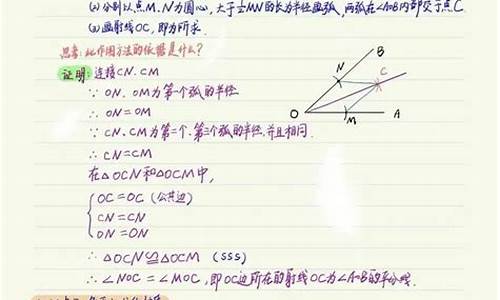 (2)分别以点M、N为圆心，大于½MN的长为半径画弧，两弧在∠AOB内部交于点C
(3)画射线OC，即为所求.
思考：此作图方法的依据是什么？
证明：连接CN、CM
∵ ON、OM为第一个弧的半径
∴ ON=OM
∵ CN、CM为第二个、第三个弧的半径，并且相同.
∴ CN=CM
在△OCN和△OCM中，
OC=OC (公共边)
CN=CN
ON=ON
∴ △OCN≌△OCM (SSS)
∴ ∠NOC=∠MOC，即OC边所在的射线OC为∠AOB的平分线.
B
N
C
O
M
A